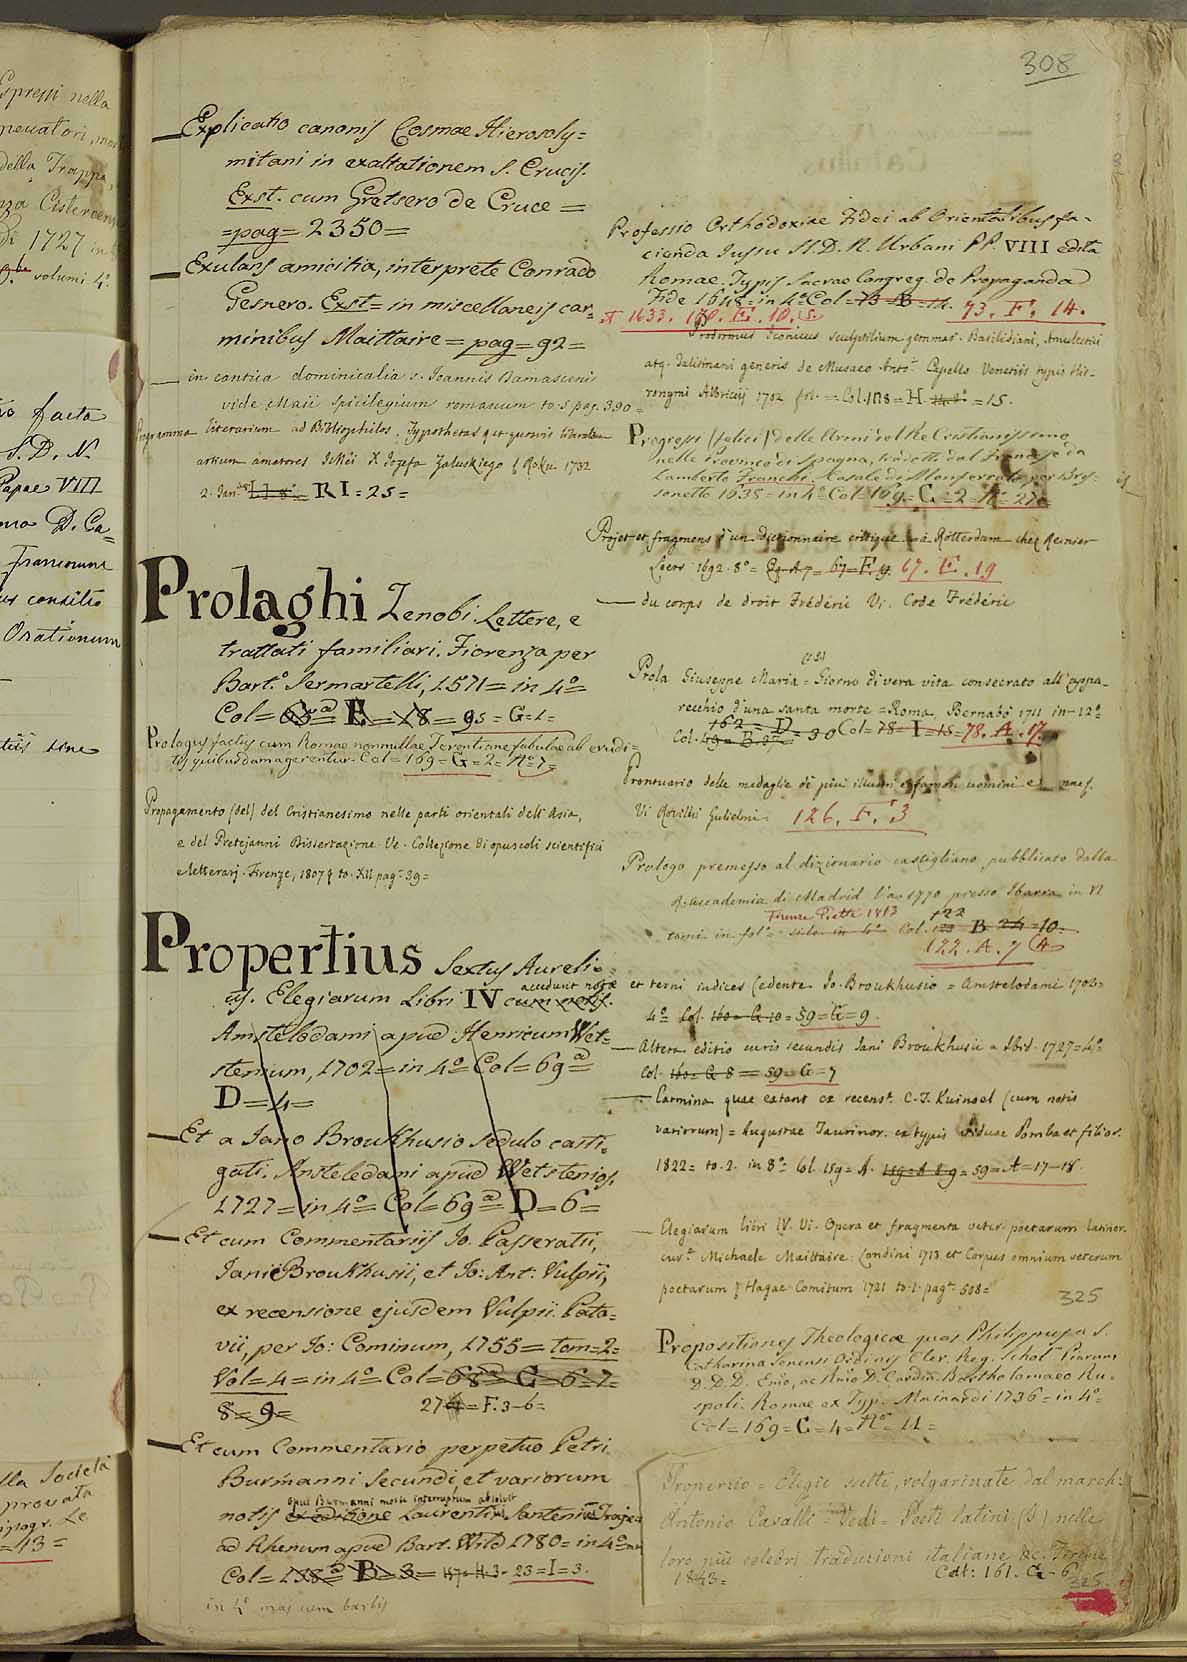 308
Espressi nella
della Trappa,
Cisterciens
Di 1727 in
volumi 4.
facta
S. D. N.
Papae VIII
D. Ca=
Francorum
consilio
Orationum
sine
lla Società
provata
Le
= 13 =
— Explicatio canonis Cosmae Hierosoly=
mitani in exaltationem S. Crucis.
Exst. cum Gretsero de Cruce =
= pag = 2350 =
— Exulans amicitia, interprete Conrado
Gesnero. Exst = in miscellaneis car=
minibus Maittaire = pag = 92 =
— in cantica dominicalia s. Joannis Damasceni
vide Maii spicilegium romanum to. 5 pag. 390 =
Programma literarium ad Bibliophilos, Typothetas et quosvis liberalium
artium amatores Zaluskiego Roku 1732
2. Jan. RI = 25 =
Prolaghi Zenobi. Lettere, e
trattati familiari. Fiorenza per
Bart.º Sermartelli, 1571 = in 4º =
Col = 63ª = E = 18 = 95 = G = 1 =
Prologus factus cum Romae nonnullae Terentianae fabulae ab erudi=
tis quibusdam agerentur. Col = 169 = G = 2 = Nº 7 =
Propagamento (del) del Cristianesimo nelle parti orientali dell'Asia,
e del Pretejanni Dissertazione Ve. Collezione di opuscoli scientifici
e letterarj. Firenze, 1807 to. XII pag. 39 =
Propertius Sextus Aureli=
us. Elegiarum Libri IV cum notis. accedunt notae
Amstelodami apud Henricum Wet=
stenium, 1702 = in 4º = Col = 69ª
D = 4 =
— Et a Jano Broukhusio sedulo casti=
gati. Amsteledami apud Wetstenios,
1727 = in 4º = Col = 69ª = D = 6 =
— Et cum Commentariis Jo. Passeratii,
Jani Broukhusii, et Jo: Ant: Vulpii,
ex recensione ejusdem Vulpii. Pata=
vii, per Jo: Cominum, 1755 = tom = 2 =
Vol = 4 = in 4º = Col = 68ª = C = 6 = 7 =
8 = 9 = 27 = F. 3-6 =
— Et cum Commentario perpetuo Petri
Burmanni Secundi, et variorum
opus Burmanni morte interruptum absolvit
notis ex editione Laurentii Santenii Traject
ad Rhenum apud Bart. Wild 1780 = in 4º =
Col = 138ª = B = 3 = 157 = H. 3 = 23 = I = 3.
in 4º maj cum barbis
Professio Orthodoxiae Fidei ab Orientalibus fa=
cienda Jussu SS. D. N. Urbani PP. VIII edita
Romae. Typis Sacrae Congreg. de Propaganda
Fide 1648 = in 4º Col = 73 = B = 14. 73. F. 14.
1633. 170. E. 10.
Prodromus Iconicus sculptilium gemmar. Basilidiani, Amulectici
atq. Talismani generis de Musaeo Antº Capello Venetiis typis Hie-
ronymi Albricij 1702 fol. = Col. 178 = H = 15.
Progressi (felici) delle Armi del Re Cristianissimo
nelle Province di Spagna, tradotti dal Francese da
Lamberto Franchi. Casale di Monferrato per
1635 = in 4º Col = 169 = C = 2 = Nº = 27 =
Projet et fragmens d'un dictionnaire critique à Rotterdam chez Reinier
Leers 1692. 8º = 67 = F. 9. 67. F. 19
— du corps de droit Frédéric Vi. Code Frédéric
Prola Giuseppe Maria = Giorno di vera vita consecrato all'appa-
recchio d'una santa morte = Roma, Bernabò 1711 in-12º =
162 = D = 30 Col = 78 = I = 15 = 78. A. 17.
Col.
Prontuario delle medaglie di più illustri e famosi uomini e
Vi Rovillii Gulielmi 126. F. 3
Prologo premesso al dizionario castigliano, pubblicato dalla
R. Accademia di Madrid l'aº 1770 presso Ibarra in VI
Firenze Piatti 1813
tomi in folº Col. 122 B 24 = 10
122. A. 7
et terni indices (edente Jo. Broukhusio = Amstelodami 1702 =
4º = Col. 160 = G 10 = 59 = G = 9.
— Altera editio curis secundis Jani Broukhusii = Ibid. 1727 = 4º
Col. 160 = G 8 = 59 = G = 7
— Carmina quae extant ex recensº. C. T. Kuinoel (cum notis
variorum) = Augustae Taurinor. ex typis viduae Pomba et filior.
1822 = to. 2. in 8º = Col. 159 = A. = 59 = A = 17-18.
— Elegiarum libri IV. Vi. Opera et fragmenta veter. poetarum latinor.
curª Michaele Maittaire. Londini 1713 et Corpus omnium veterum
poetarum Hagae Comitum 1721 to. 1. pag. 508 =
325
Propositiones Theologicae quas Philippus a S.
Catharina Senensi Ordinis Cler. Reg. Schol. Piarum
D. D. D. Emo, ac Rmo D. Cardin. Bartholomaeo Ru-
spoli. Romae ex Typ. Mainardi 1736 = in 4º =
Col = 169 = C = 4 = Nº = 11 =
Properzio = Elegie scelte, volgarizzate dal march:
Antonio Cavalli = Vedi = Poeti latini (I) nelle
loro più celebri traduzioni italiane &c. Firenze
1843 = Colt: 161. G - 6
325